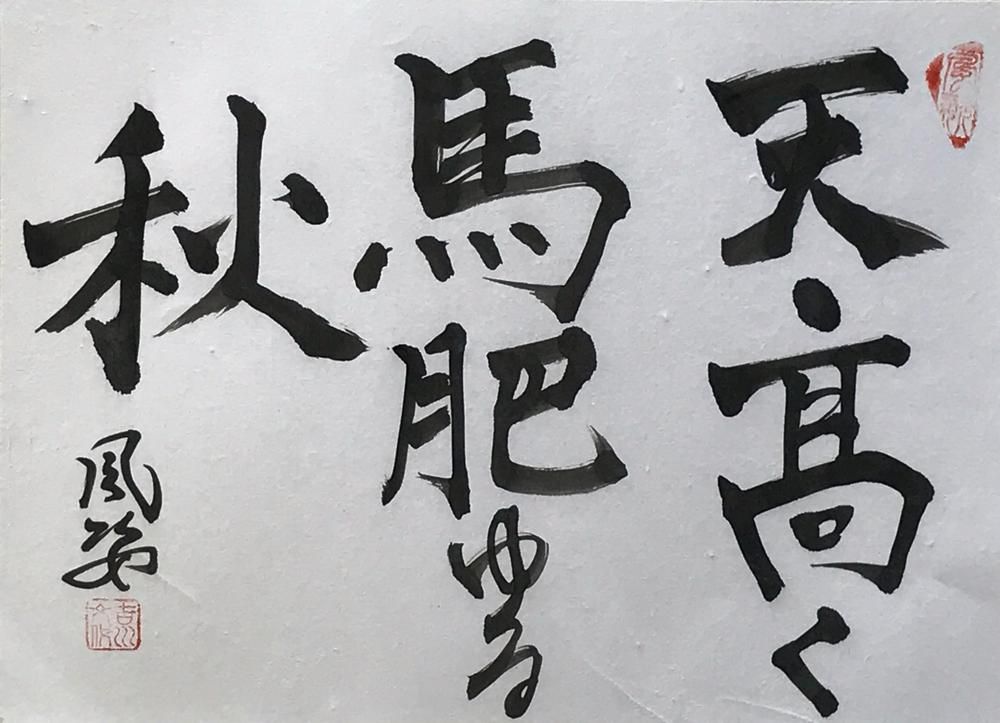 天高く
馬肥ゆる
秋
風姿